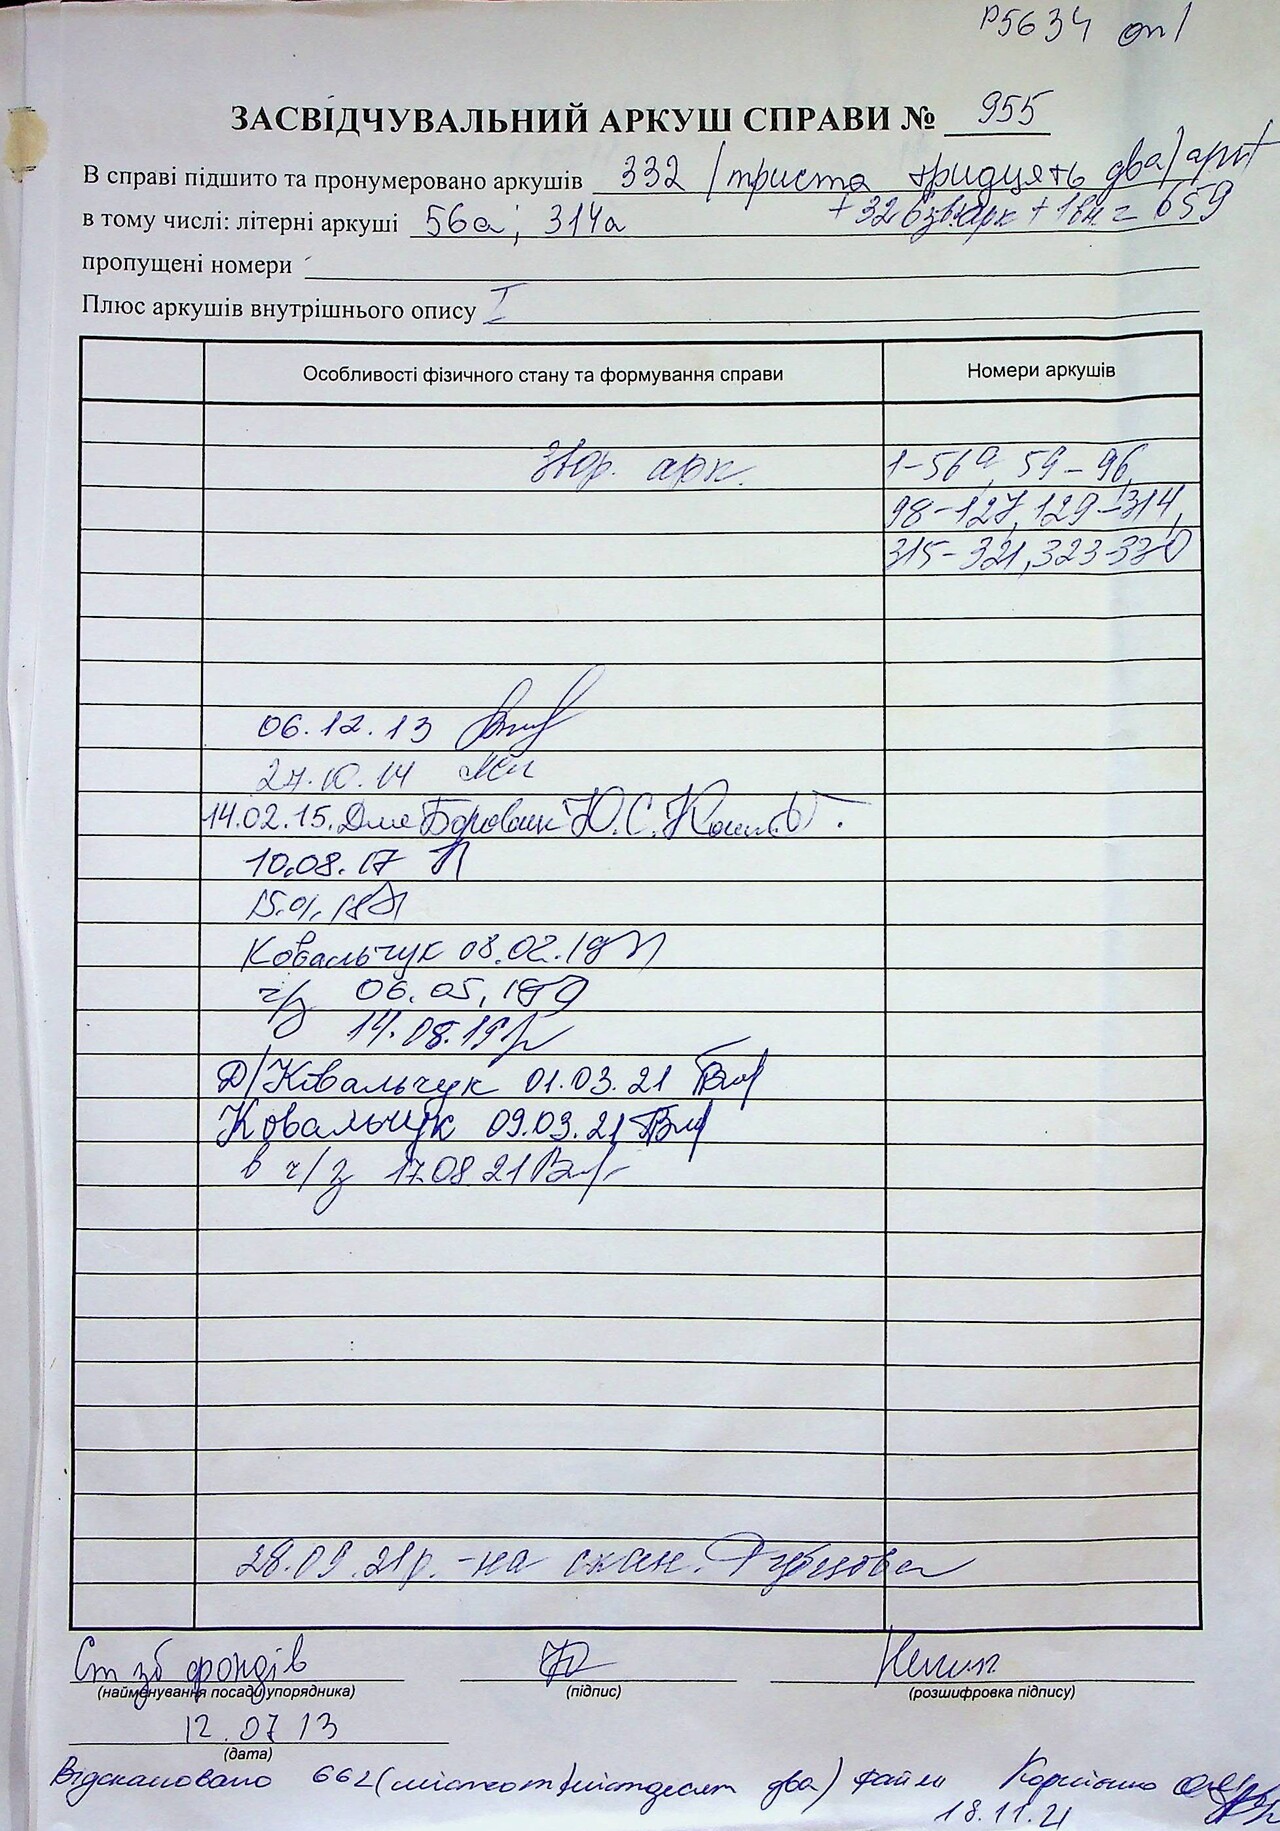 Р5634 оп1
ЗАСВІДЧУВАЛЬНИЙ АРКУШ СПРАВИ № 955
В справі підшито та пронумеровано аркушів 332 /триста тридцять два/ арк
в тому числі: літерні аркуші 56а; 314а +326 зв.арк + 1вн. = 659
пропущені номери
Плюс аркушів внутрішнього опису I
Особливості фізичного стану та формування справи Номери аркушів
Звор. арк. 1-56а, 59-96,
98-127, 129-314,
315-321, 323-330
06.12.13
27.10.14
14.02.15. Для Боровик Ю.С.
10.08.17
15.01.18
Ковальчук 08.02.19
ч/з 06.05.19
14.08.19
Д/Ковальчук 01.03.21
Ковальчук 09.03.21
в ч/з 17.08 21
28.09.21р. - на скан. Рубцова
Ст зб фондів
(найменування посади упорядника) (підпис) (розшифровка підпису)
12.07 13
(дата)
Відскановано 662 (шістсот шістдесят два) файли
18.11.21